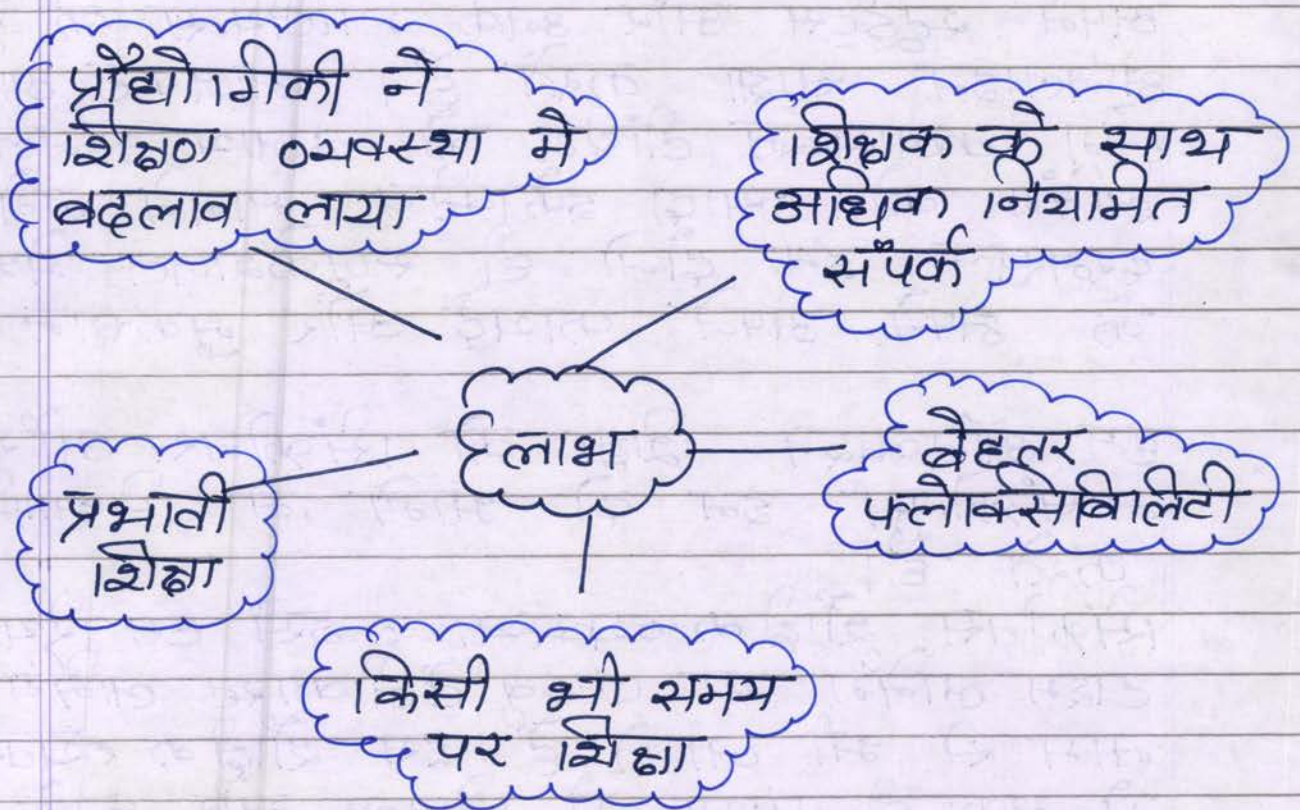 प्रौद्योगिकी ने
शिक्षण व्यवस्था मे
बदलाव लाया
शिक्षक के साथ
अधिक नियामित
संपर्क
लाभ
बेहतर
फ्लेक्सिबिलिटी
प्रभावी
शिक्षा
किसी भी समय
पर शिक्षा